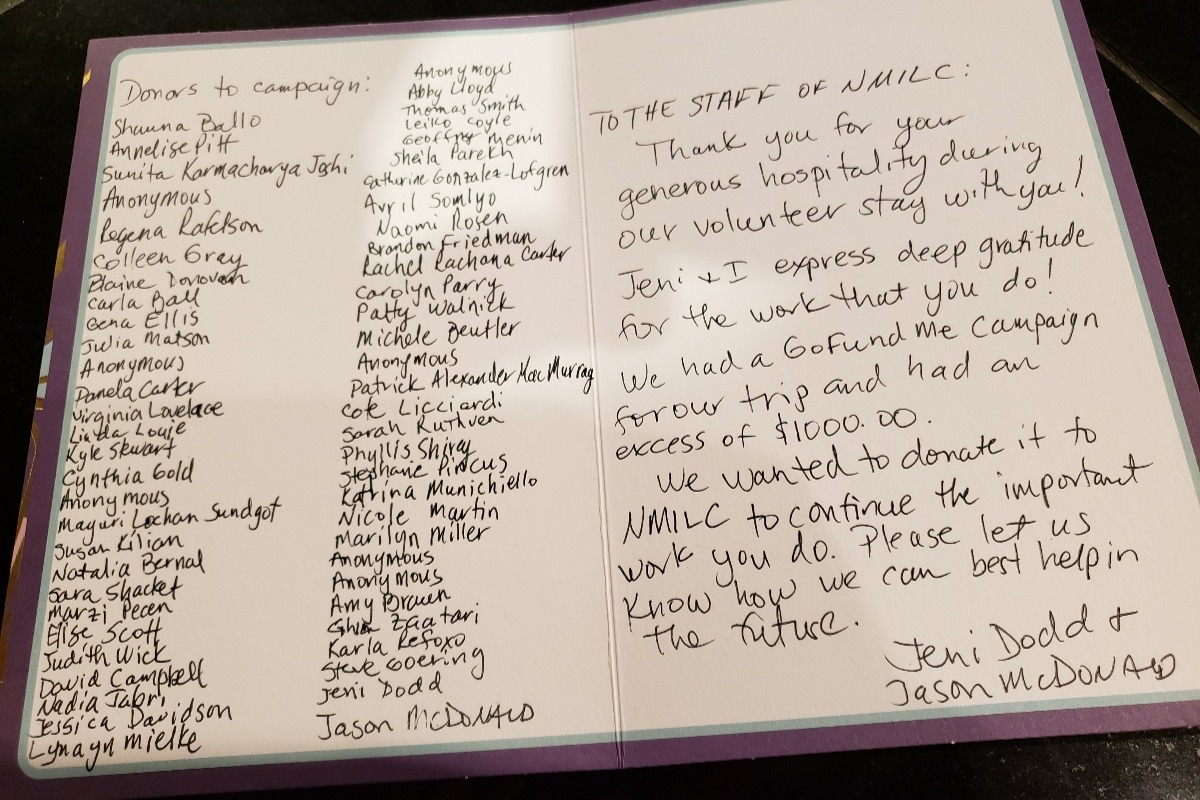 Donors to campaign:
Shauna Ballo
Annelise Pitt
Sunita Karmacharya Joshi
Anonymous
Regena Rafelson
Colleen Gray
Blaine Donovan
Carla Ball
Gena Ellis
Julia Matson
Anonymous
Pamela Carter
Virginia Lovelace
Linda Louie
Kyle Stewart
Cynthia Gold
Anonymous
Mayuri Lochan Sundgot
Susan Kilian
Natalia Bernal
Sara Shacket
Marzi Pecen
Elise Scott
Judith Wick
David Campbell
Nadia Jabri
Jessica Davidson
Lynayn Mielke
Anonymous
Abby Lloyd
Thomas Smith
Leiko Coyle
Geoffrey Menin
Sheila Parekh
Catharine Gonzalez-Lofgren
Avril Somlyo
Naomi Rosen
Brandon Friedman
Rachel Rachana Carter
Carolyn Parry
Patty Walnick
Michele Beutler
Anonymous
Patrick Alexander MacMurray
Cole Licciardi
Sarah Ruthven
Phyllis Shirey
Stephanie Pincus
Katrina Munichiello
Nicole Martin
Marilyn Miller
Anonymous
Anonymous
Amy Braun
Zaatari
Karla Refoxo
Steve Goering
Jeni Dodd
Jason McDONALD
TO THE STAFF OF NMILC:
Thank you for your
generous hospitality during
our volunteer stay with you!
Jeni & I express deep gratitude
for the work that you do!
We had a GoFund Me Campaign
for our trip and had an
excess of $1000.00.
We wanted to donate it to
NMILC to continue the important
work you do. Please let us
Know how we can best help in
the future.
Jeni Dodd &
Jason McDONALD